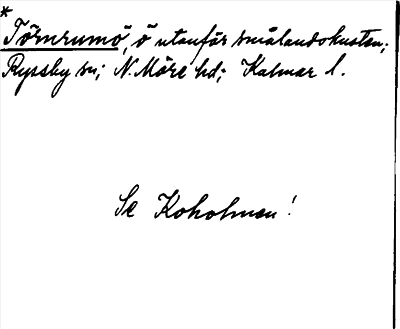 *
Törnrumö, ö utanför smålandskusten;
Ryssby sn; N. Möre hd; Kalmar l.
Se Koholmen!